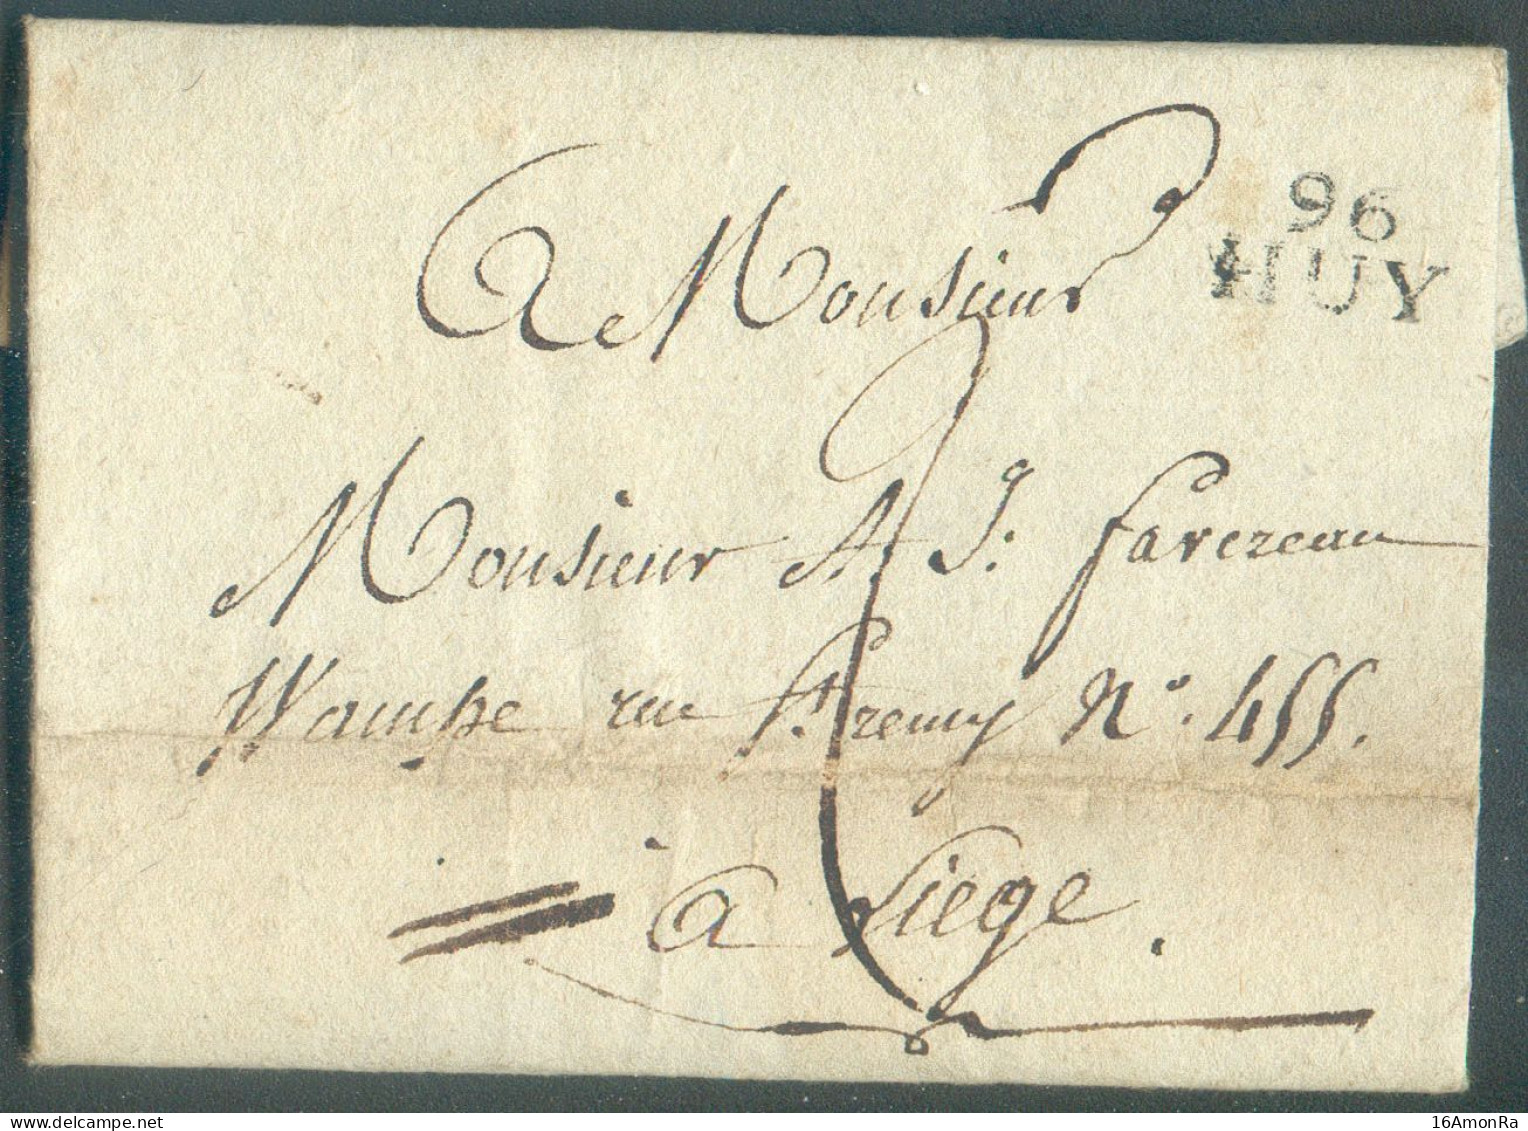 96
HUY
A Monsieur
Monsieur A. J. Favereau
Wampe rue St. Remy N°. 455.
à Liège.
2
delcampe.net
16AmonRa